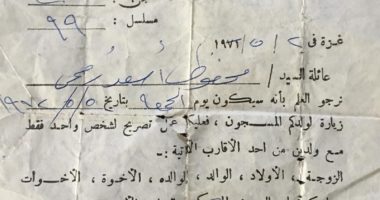 مسلسل : ٩٩
غزة في ٢ / ٥ / ١٩٧٢
عائلة السيد / محفوظ أسعد
نرجو العلم بأنه سيكون يوم الجمعة بتاريخ ٥ / ٥ / ٩٧٢
زيارة لولدكم المسجون ، فعليكم عمل تصريح لشخص واحد فقط
مع ولدين من احد الأقارب الآتية :-
الزوجة ، الأولاد ، الوالد ، الوالده ، الأخوة ، الأخوات